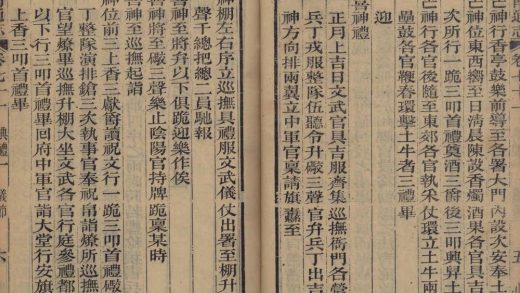 神行香亭鼓樂前導至各署大門內設次安奉土
神位東西嚮至日清晨陳設香燭酒果各官具吉
次所行一跪三叩首禮奠酒三爵後三叩興舁土
神行各官後隨至東郊各官執采仗環立土牛兩
壘鼓各官鞭春環擊土牛者三禮畢
迎
喜神禮
正月上吉日文武官具吉服齊集巡撫衙門各營
兵丁戎服整隊伍聽令升礮三聲官弁兵丁出吉
神方向排兩翼立中軍官稟請旗纛至
五
神棚左右序立巡撫具禮服文武儀仗出署至棚升
聲千總把總二員馳報
喜神至將弁以下俱跪迎樂作俟
神將至礮三聲樂止陰陽官持牌跪稟某時
喜神至巡撫起詣
神位前三上香三獻爵讀祝文行一跪三叩首禮礮
丁整隊演排鎗三次執事官奉祝帛詣燎所巡撫
官望燎畢巡撫升棚大坐文武各官行庭參禮都
以下行三叩首禮畢回府中軍官詣大堂行安旗
上香三叩首禮畢
通志 卷七十一 典禮一 儀節 六